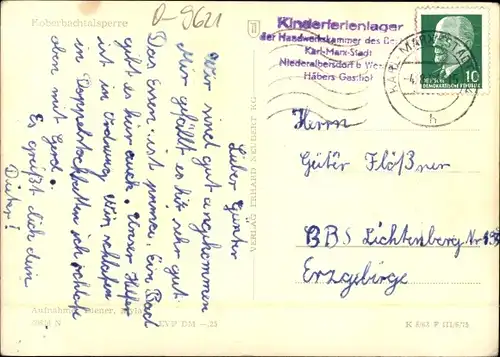 Koberbachtalsperre
D-9621
Kinderferienlager
der Handwerkskammer des
Karl-Marx-Stadt
Niederalbersdorf b
Häbers Gasthof
KARL-MARX-STADT
h
10
DEUTSCHE DEMOKRATISCHE REPUBLIK
Lieber Günter
Wir sind gut angekommen
Mir gefällt es hir sehr gut.
Das Essen ist prima. Ein Bad
gibt es hir auch. Unser Helfer
ist in Ordnung. Wir schlafen
in Doppelstockbetten ich schlafe
oben mit Gerd.
Es grüßt dich dein
Dieter!
Herrn
Güter Flößner
BBS Lichtenberg Nr
Erzgebirge
VERLAG ERHARD NEUBERT KG
Aufnahme: Diener,
N
EVP DM -,25